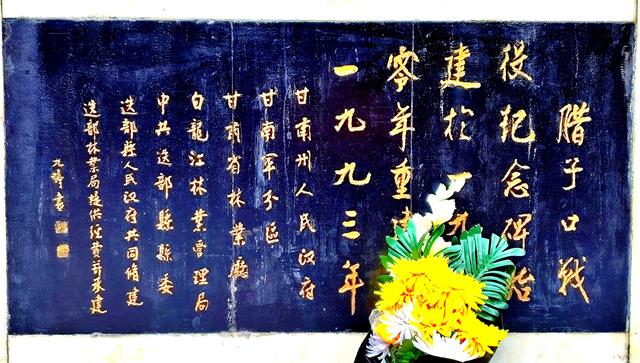 腊子口战
役纪念碑始
建於一九
零年重建
一九九三年
甘南州人民政府
甘南军分區
甘肃省林業廳
白龍江林業管理局
中共迭部縣縣委
迭部縣人民政府共同脩建
迭部林業局提供经费并承建
九 書